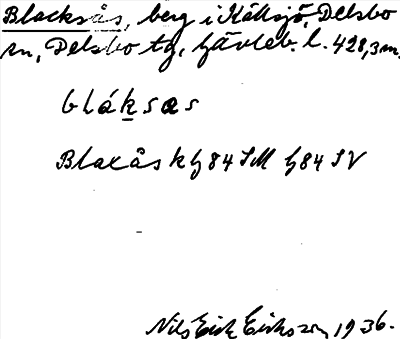 Blacksås, berg i Källsjö, Delsbo
sn, Delsbo tg, Gävleb. l. 428,3 m.
blåk̲sas
Blaxås k G84 SM G84 SV
Nils Erik Eriksson 1936.